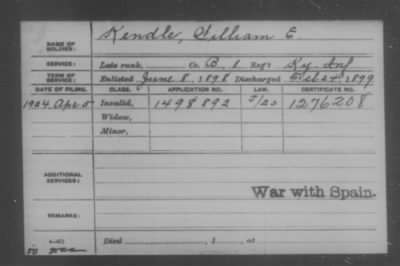 NAME OF SOLDIER: Kendle, William E.
SERVICE: Late rank, Co. B, 1 Reg't Ky. Inf
TERM OF SERVICE: Enlisted June 8, 1898 Discharged Feb 24, 1899
DATE OF FILING. CLASS. APPLICATION NO. LAW. CERTIFICATE NO.
1924, Apr 5 Invalid, 1498892 5/20 1276208
Widow,
Minor,
ADDITIONAL SERVICES:
War with Spain.
REMARKS:
Died , 1 , at